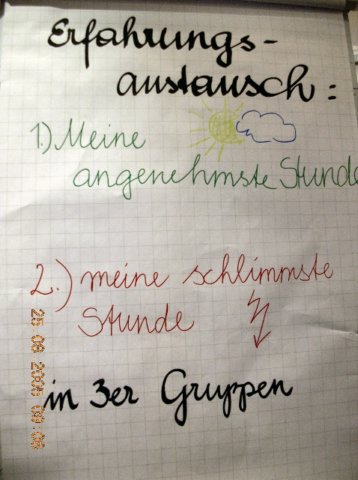 Erfahrungs-
austausch:
1) Meine
angenehmste Stunde
2.) meine schlimmste
Stunde
in 3er Gruppen